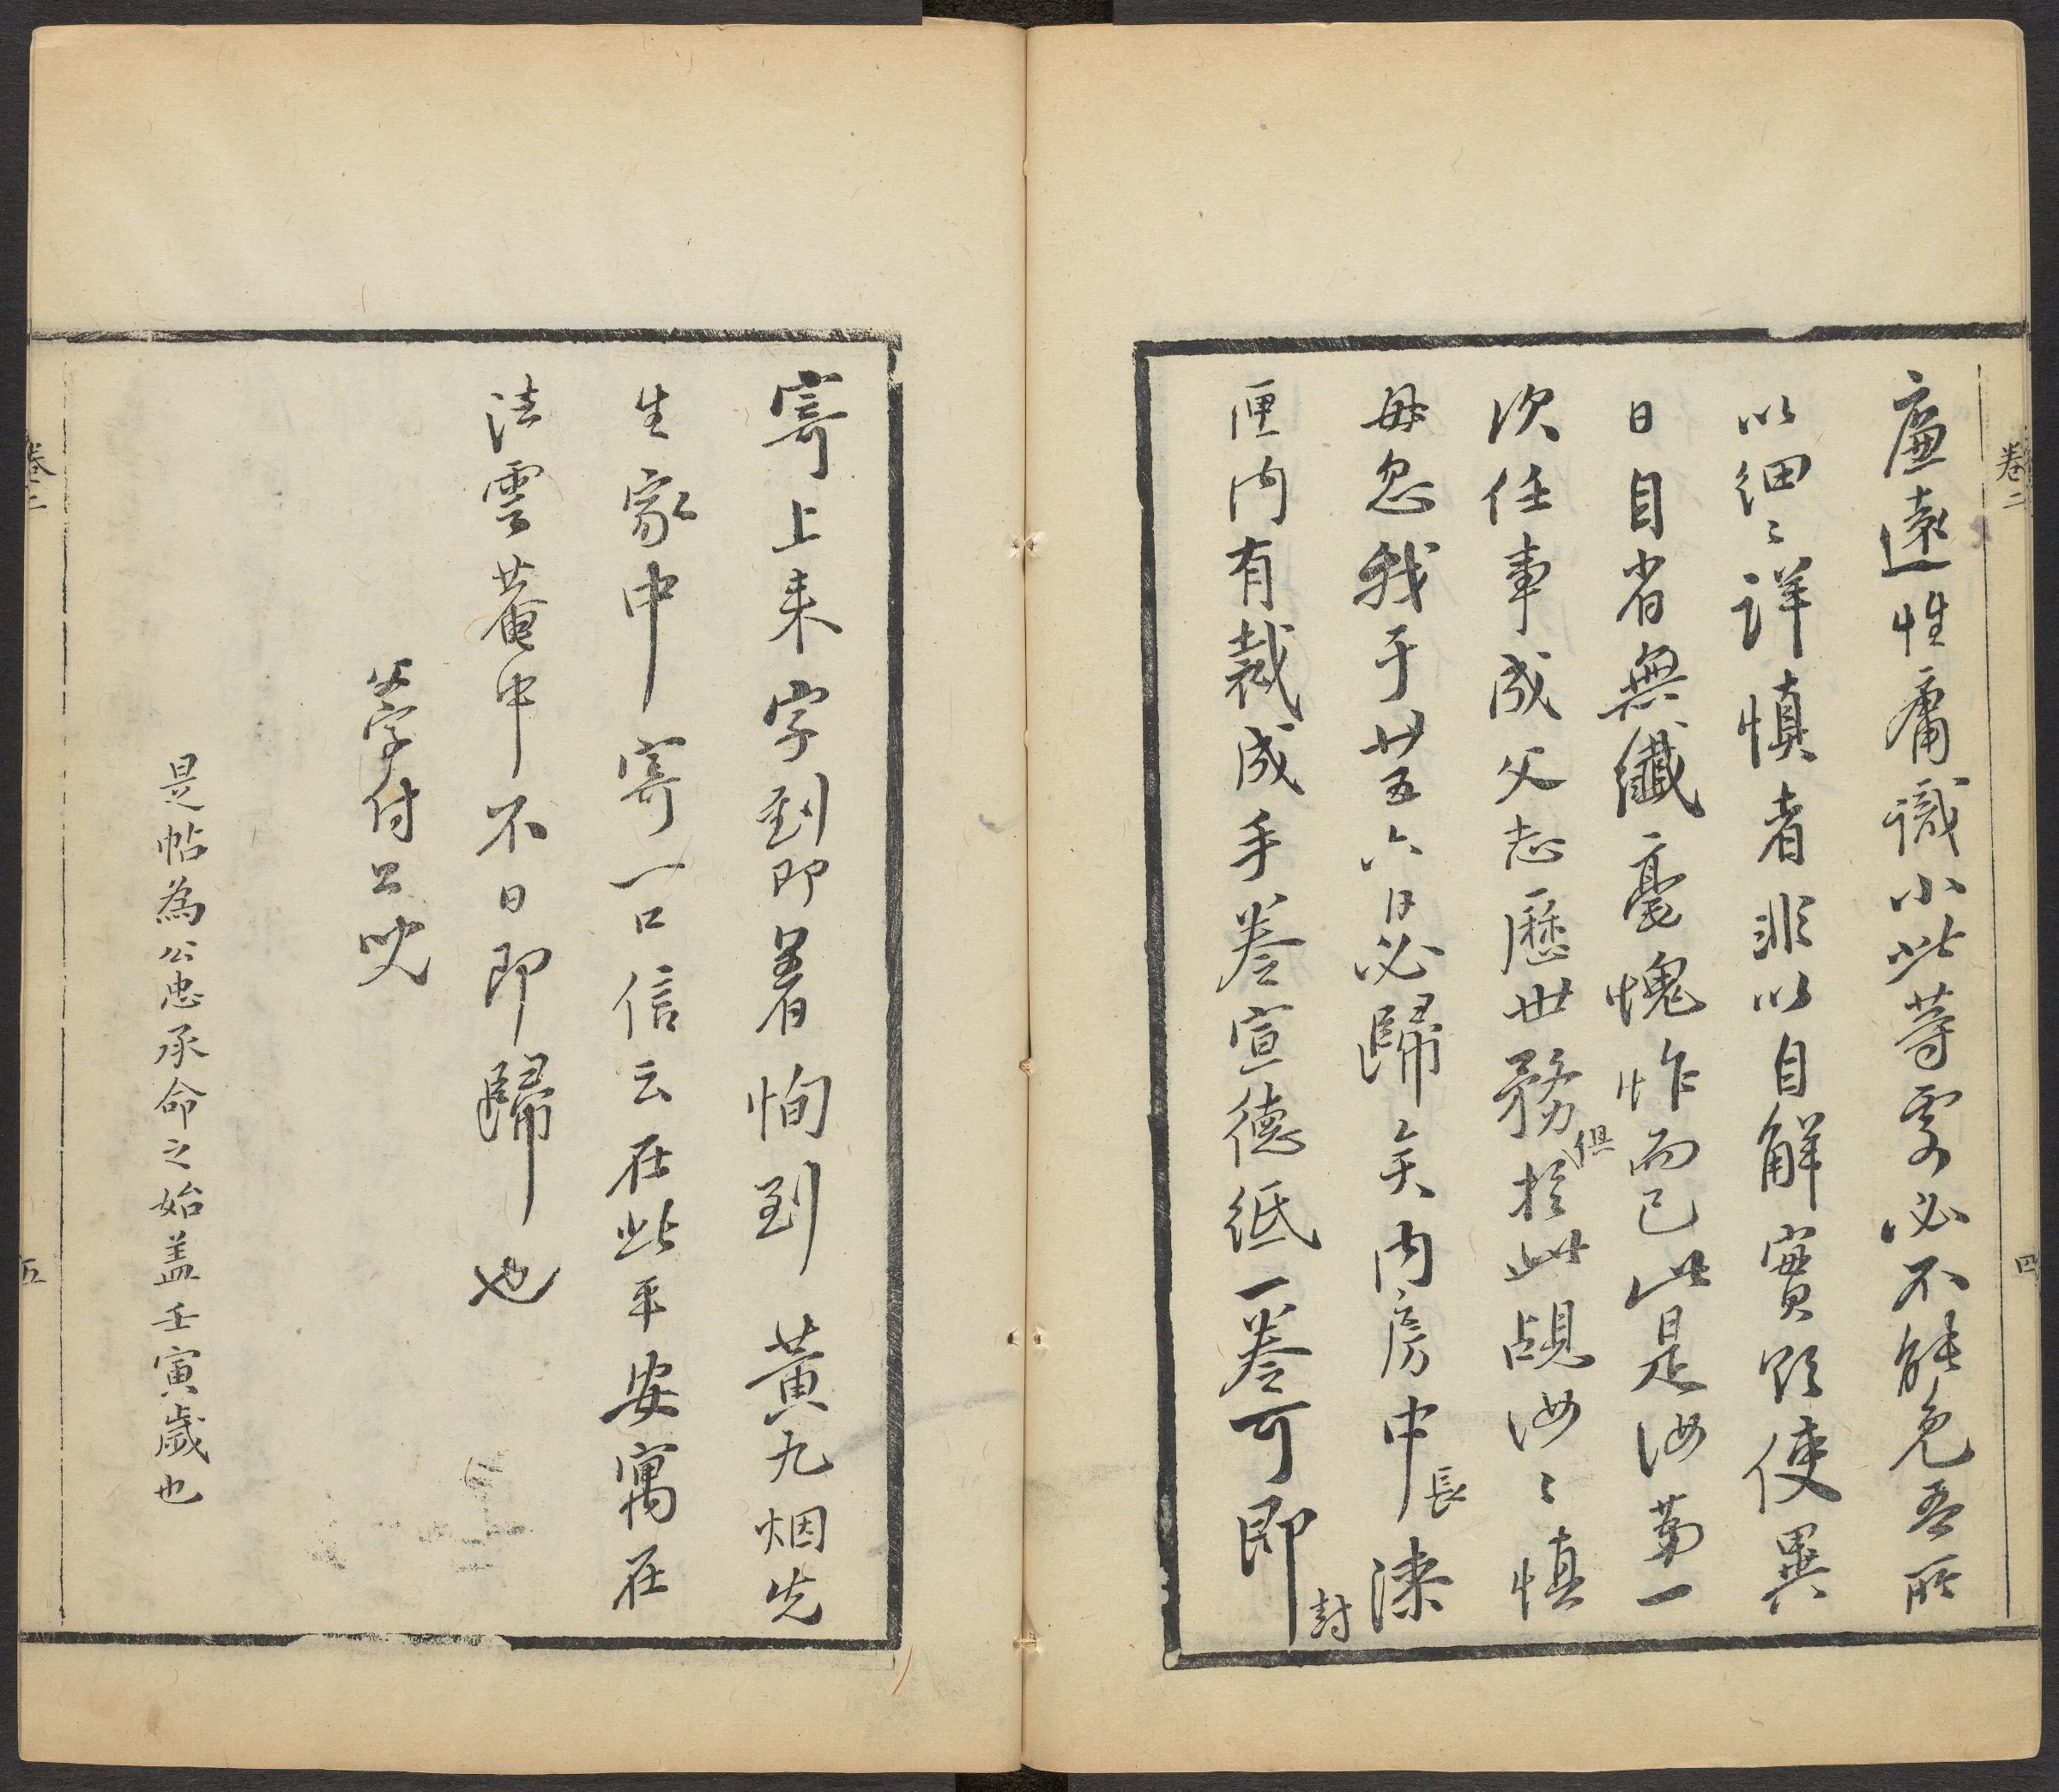 卷二
四
廉遠性庸識小此等處必不能免吾所
以細〻詳慎者非以自解實欲使異
日自省無纖毫愧怍而已此是汝第一
次任事成父志歷世務但於此覘汝〻慎
毋忽我于廿五六日必歸矣内房中長漆
匣内有裁成手卷宣德紙一卷可即封
寄上来字到即着恂到黃九烟先
生家中寄一口信云在此平安寓在
法雲菴中不日即歸也
父字付公
是帖為公忠承命之始盖壬寅歲也
卷二
五